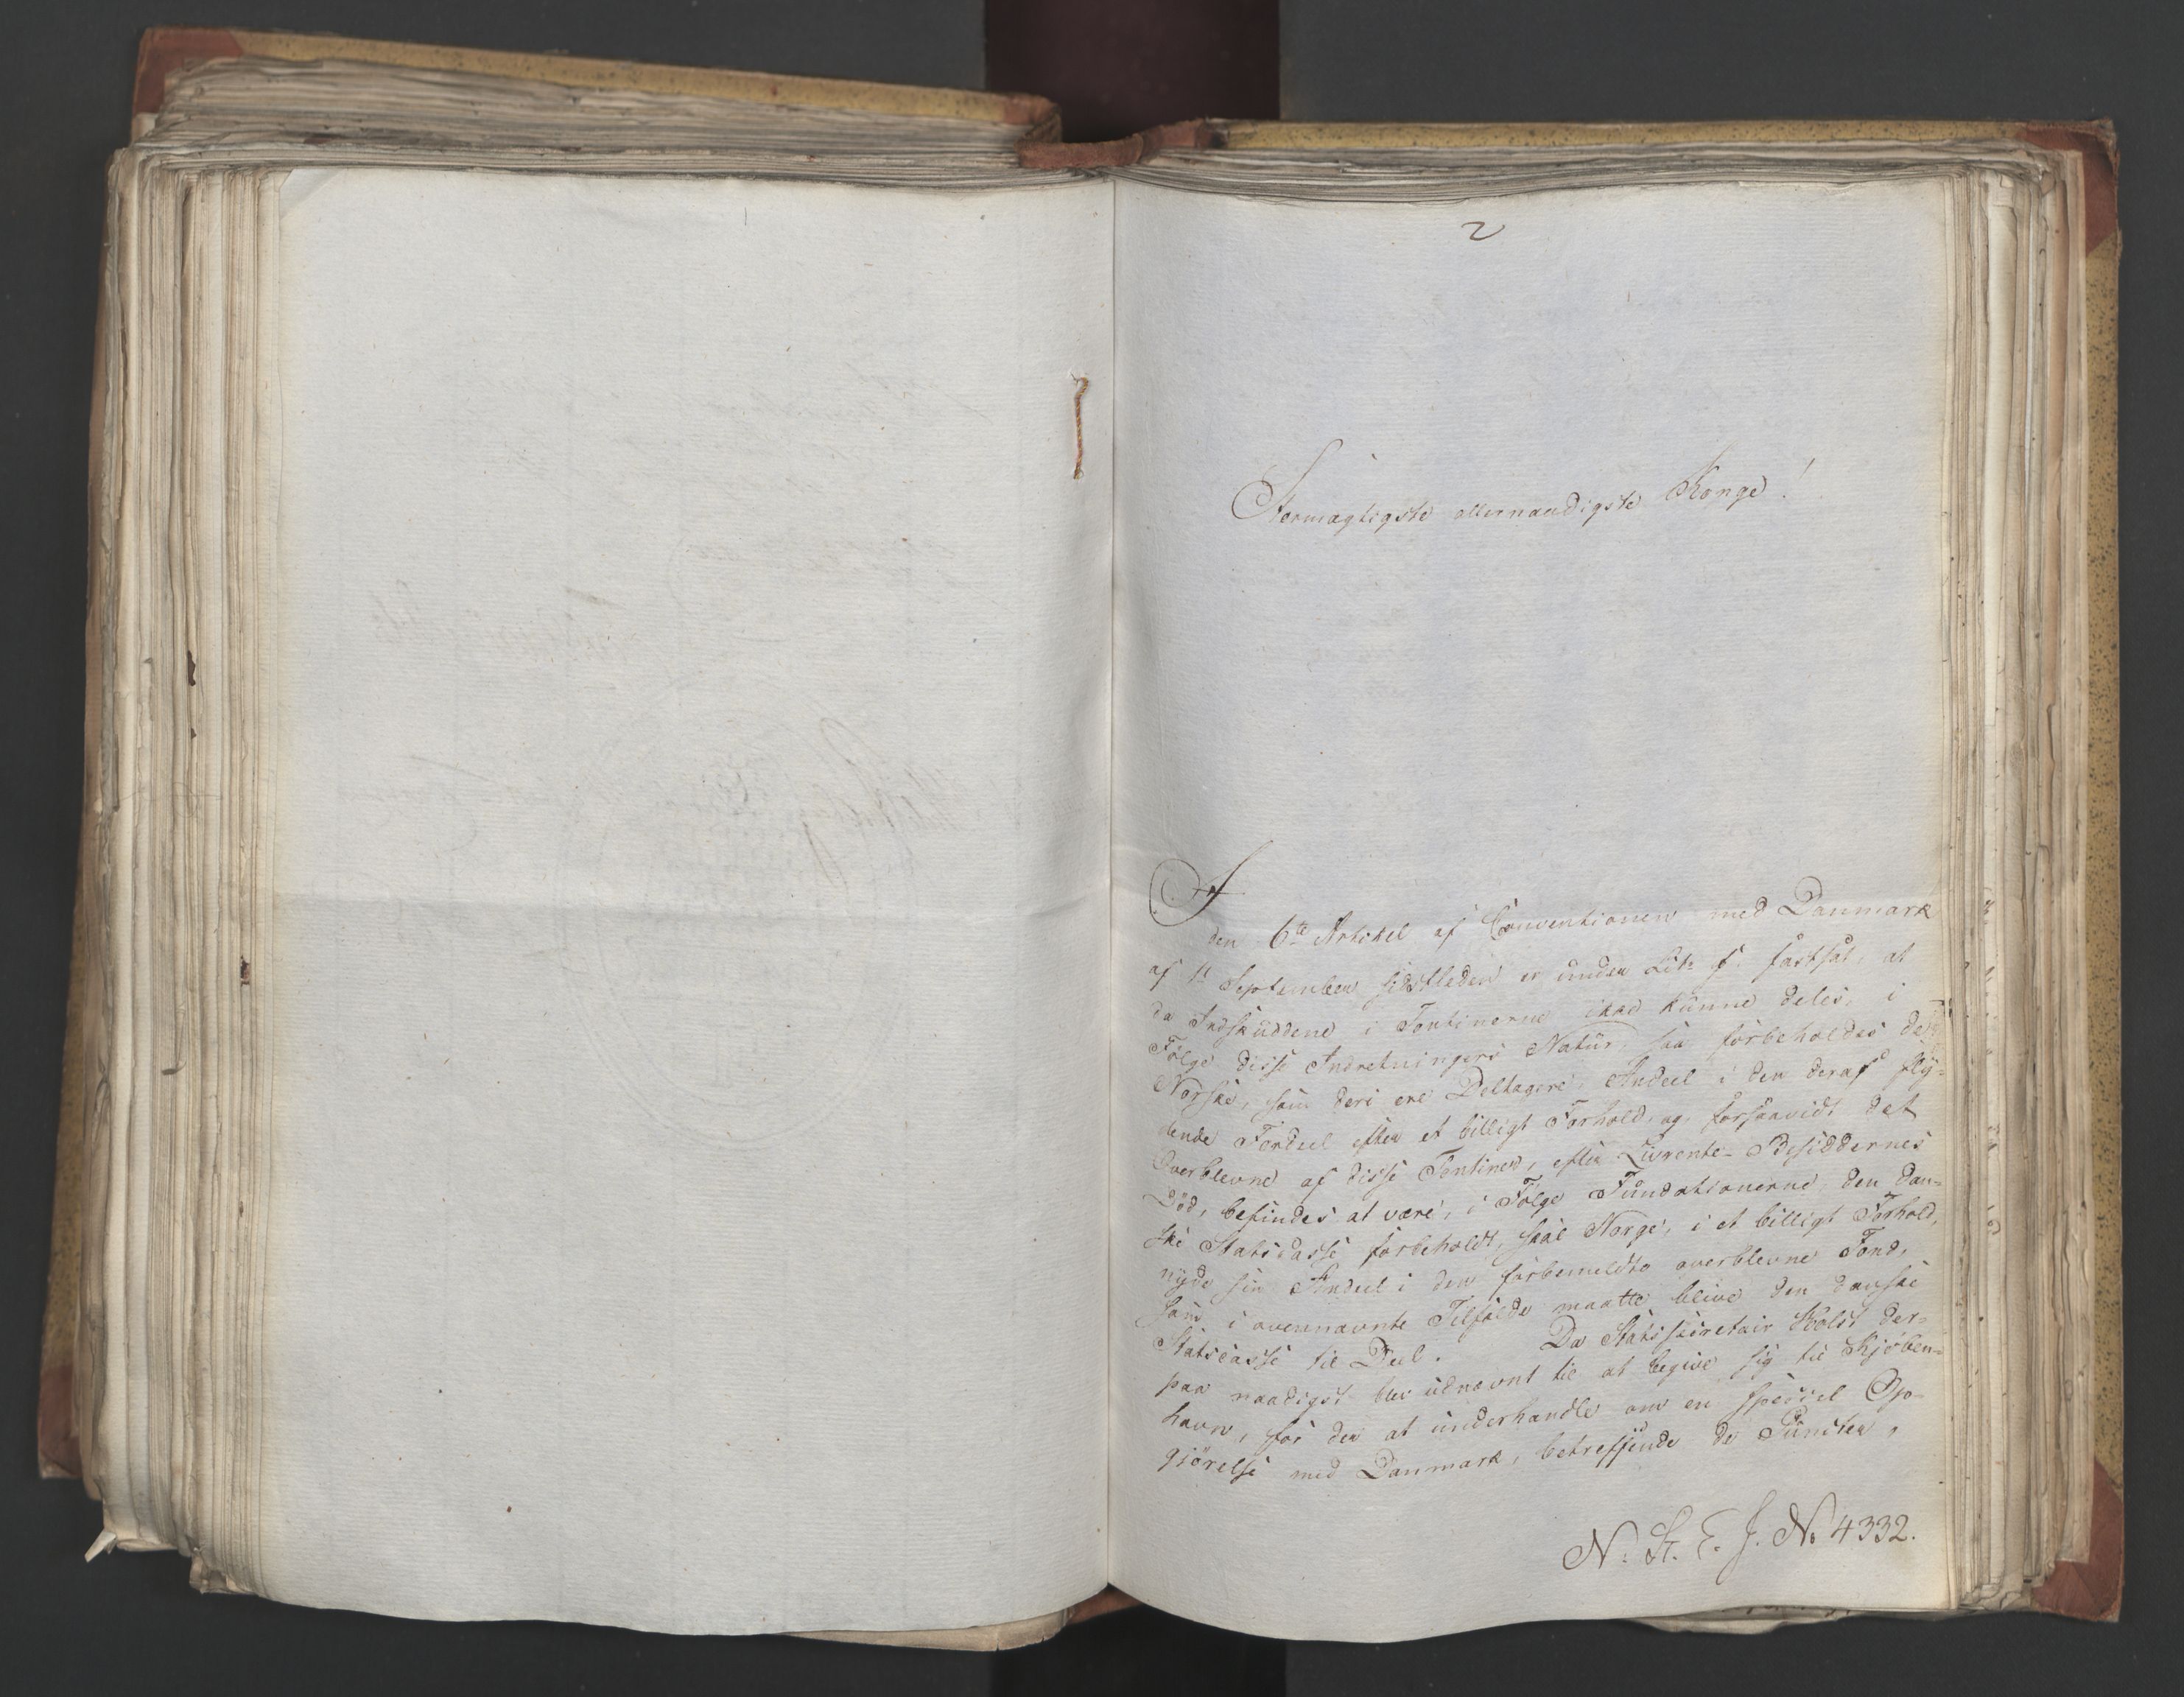 2
Stormægtigste allernaadigste Konge!
I
den 6te Artikel af Conventionen med Danmark
af 1 September sidstleden er under Litr f. fastsat, at
da Indskuddene i Tontinerne ikke kunne deles, i
Følge disse Indretningers Natur, saa forbeholdes de
Norske, som deri ere Deltagere, Andeel i den deraf fly-
dende Fordeel efter et billigt Forhold, og, forsaavidt det
Overblevne af disse Tontiner, efter Livrente-Besiddernes
Død, befindes at være, i Følge Fundationerne, den Dan-
ske Statscasse forbeholdt, skal Norge, i et billigt Forhold,
nyde sin Andeel i den forbemeldte overblevne Fond,
som i ovennævnte Tilfælde maatte blive den danske
Statscasse til Deel. Da Statssecretair Holst der-
paa naadigst blev udnævnt til at begive sig til Kjøben-
havn, for der at underhandle om en speciel Op-
gjørelse med Danmark, betreffende de Puncter,
N. St. E. J. No 4332.